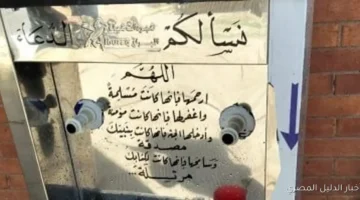 نسألكم
الدعاء
اللهم
ارحمها فإنها كانت مسلمة
واغفر لها فإنها كانت مؤمنة
وأدخلها الجنة فإنها كانت بنبيك
مصدقة
وسامحها فإنها كانت لكتابك
مرتلة ...
خبار الدليل المصري